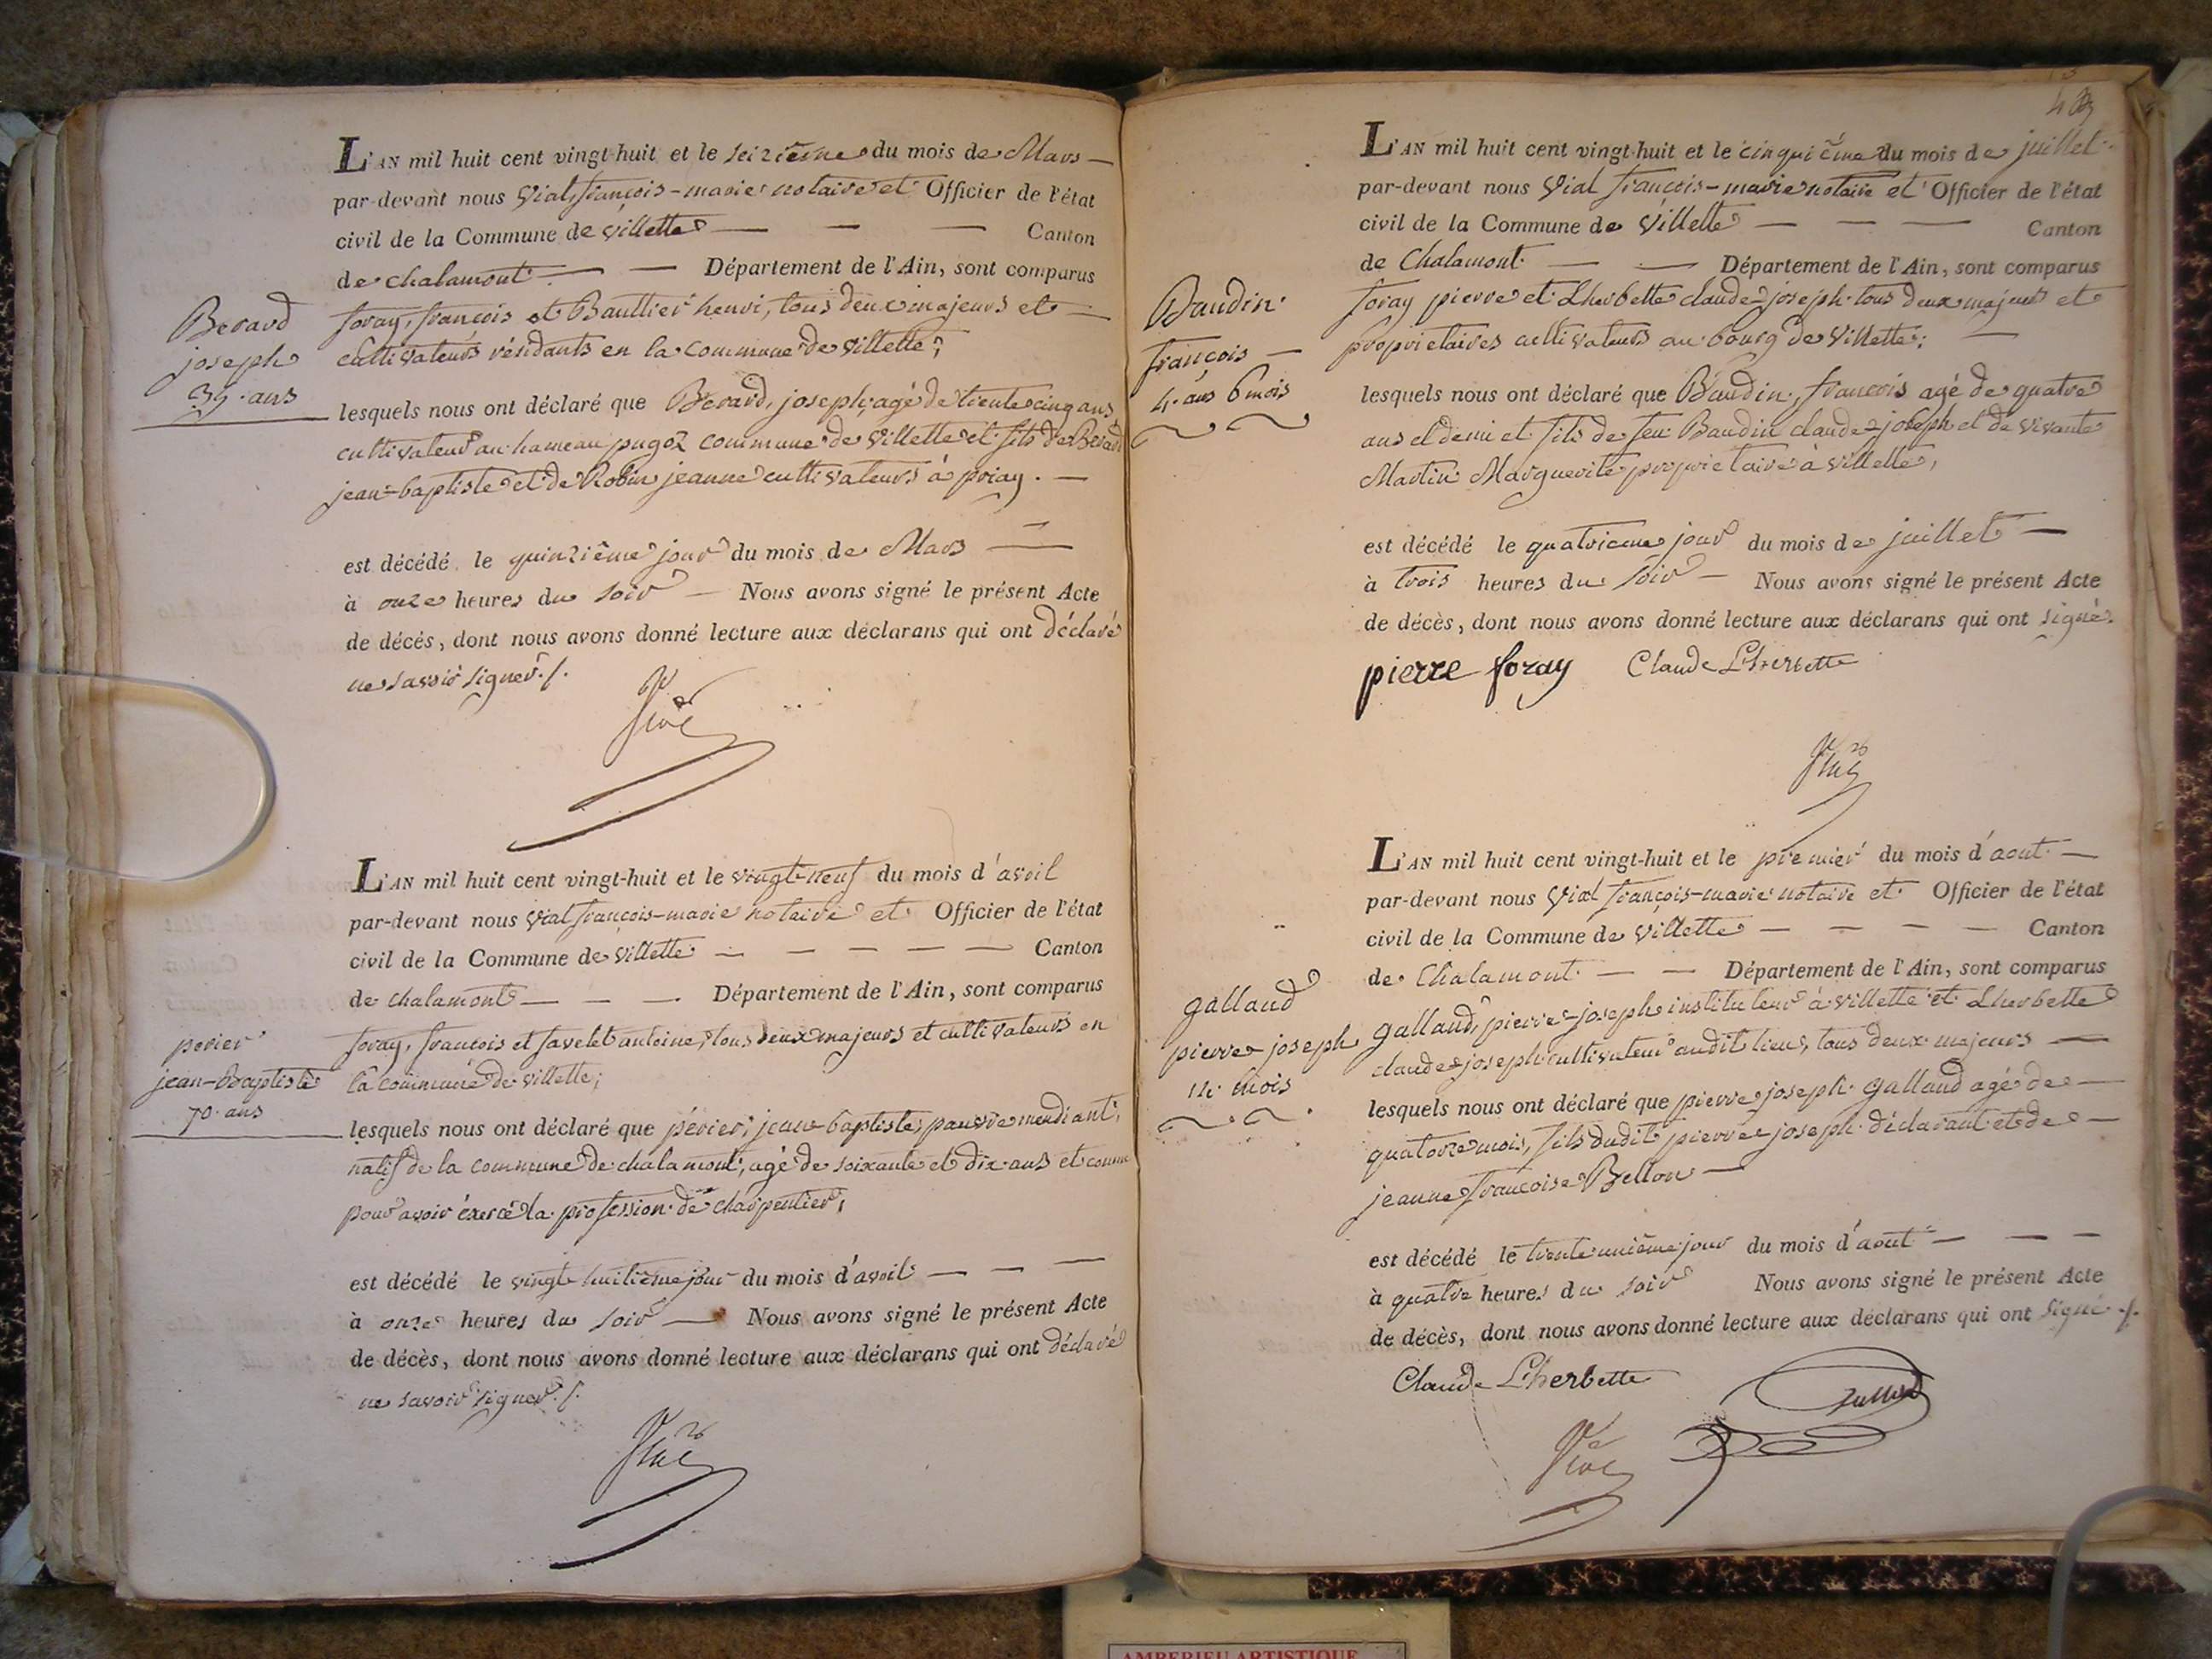 L'AN mil huit cent vingt-huit et le seizième du mois de Mars —
par-devant nous Vial, françois-marie notaire et Officier de l'état
civil de la Commune de villette — — — Canton
de chalamont — — Département de l'Ain, sont comparus
foray, françois et Baullier henri, tous deux majeurs et —
cultivateurs résidants en la commune de villette;
Berard
joseph
35 ans
lesquels nous ont déclaré que Berard, joseph, agé de trente cinq ans
cultivateur au hameau pugoz commune de villette et fils de Berard
jean-baptiste et de Robin jeanne cultivateurs à priay. —
est décédé le quinzième jour du mois de Mars —
à onze heures du soir — Nous avons signé le présent Acte
de décés, dont nous avons donné lecture aux déclarans qui ont déclaré
ne savoir signer ./.
L'AN mil huit cent vingt-huit et le vingt-neuf du mois d'avril
par-devant nous Vial françois-marie notaire et Officier de l'état
civil de la Commune de villette — — — — — Canton
de chalamont — — — Département de l'Ain, sont comparus
foray, francois et favelet antoine, tous deux majeurs et cultivateurs en
la commune de villette;
perier
jean-Baptiste
70 ans
lesquels nous ont déclaré que périer, jean-baptiste, pauvre mendiant,
natif de la commune de chalamont, agé de soixante et dix ans et connu
pour avoir éxercé la profession de charpentier,
est décédé le vingt huitième jour du mois d'avril — — —
à onze heures du soir — Nous avons signé le présent Acte
de décès, dont nous avons donné lecture aux déclarans qui ont déclaré
ne savoir signer ./.
L'AN mil huit cent vingt-huit et le cinquième du mois de juillet
par-devant nous Vial françois-marie notaire et Officier de l'état
civil de la Commune de Villette — — — Canton
de Chalamont — — Département de l'Ain, sont comparus
foray pierre et Lherbette claude-joseph tous deux majeurs et
propriétaires cultivateurs au bourg de Villette; —
Baudin
françois —
4 ans 6 mois
lesquels nous ont déclaré que Baudin, françois agé de quatre
ans et demi et fils de feu Baudin claude-joseph et de vivante
Martin Marguerite propriétaire à villette,
est décédé le quatrieme jour du mois de juillet —
à trois heures du soir — Nous avons signé le présent Acte
de décès, dont nous avons donné lecture aux déclarans qui ont signé.
pierre foray Claude Lherbette
L'AN mil huit cent vingt-huit et le premier du mois d'aout —
par-devant nous Vial françois-marie notaire et Officier de l'état
civil de la Commune de villette — — — — Canton
de Chalamont — — Département de l'Ain, sont comparus
gallaud, pierre-joseph instituteur à villette et Lherbette
claude-joseph cultivateur audit lieu, tous deux majeurs —
gallaud
pierre joseph
14 mois
lesquels nous ont déclaré que pierre joseph gallaud agé de —
quatorze mois, fils dudit pierre joseph déclarant et de —
jeanne françoise Bellon —
est décédé le trente unième jour du mois d'aout — — —
à quatre heures du soir Nous avons signé le présent Acte
de décès, dont nous avons donné lecture aux déclarans qui ont signé ./.
Claude Lherbette
AMBERIEU ARTISTIQUE